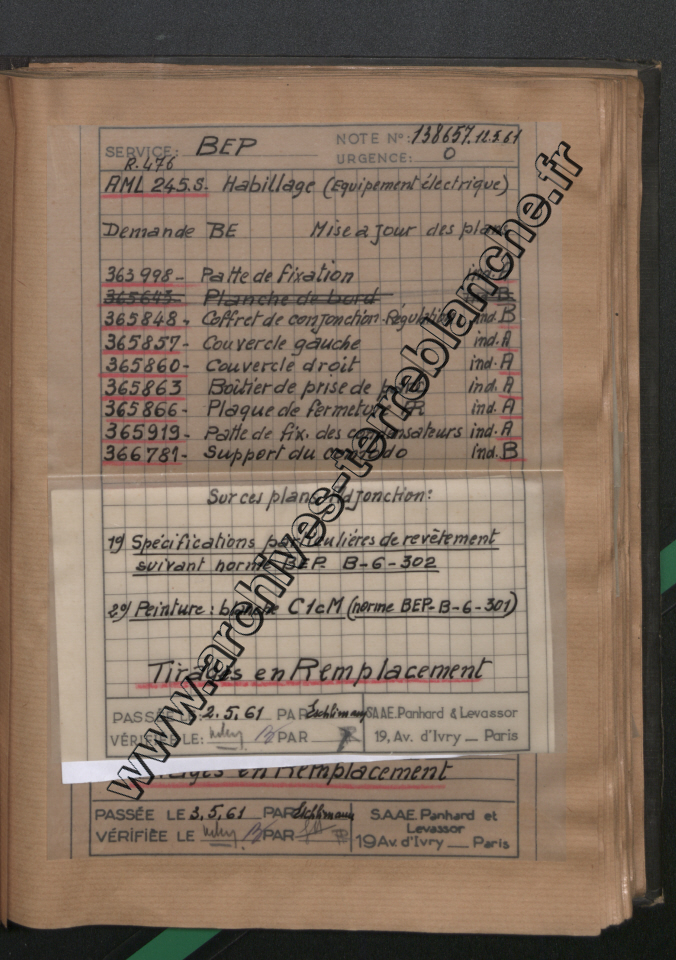 SERVICE: BEP
NOTE N°: 138657.12.5.61
R.476
URGENCE: 0
AML 245.S. Habillage (Equipement électrique)
Demande BE Mise a jour des plans
363998- Patte de fixation ind.
365643- Planche de bord ind. B
365848- Coffret de conjonction. Régulation ind. B
365857- Couvercle gauche ind. A
365860- Couvercle droit ind. A
365863 Boitier de prise de ind. A
365866- Plaque de fermeture AR ind. A
365919- Patte de fix. des condensateurs ind. A
366781- Support du ind. B
Sur ces plans Adjonction:
1°) Spécifications particuliéres de revêtement
suivant norme BEP. B-6-302
2°) Peinture: blanche C1cM (norme BEP-B-6-301)
Tirages en Remplacement
PASSÉE LE: 2.5.61 PAR Eschlimann S.A.A.E. Panhard & Levassor
VÉRIFIÉ LE: PAR 19, Av. d'Ivry _ Paris
Tirages en Remplacement
PASSÉE LE 3.5.61 PAR Eschlimann S.A.A.E. Panhard et
Levassor
VÉRIFIÈE LE PAR 19 Av. d'Ivry __ Paris
www.archives-terreblanche.fr